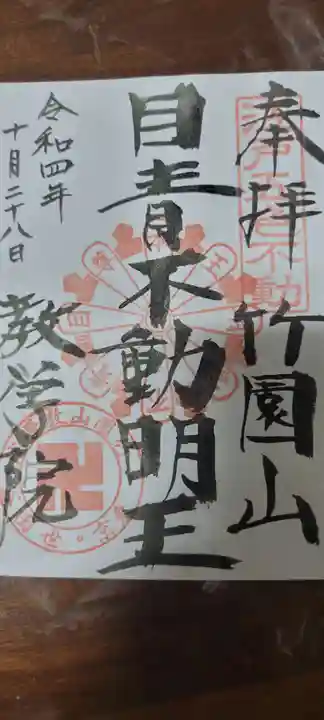 奉拝 竹園山
目青不動明王
令和四年
十月二十八日
教学院
江戸五色不動